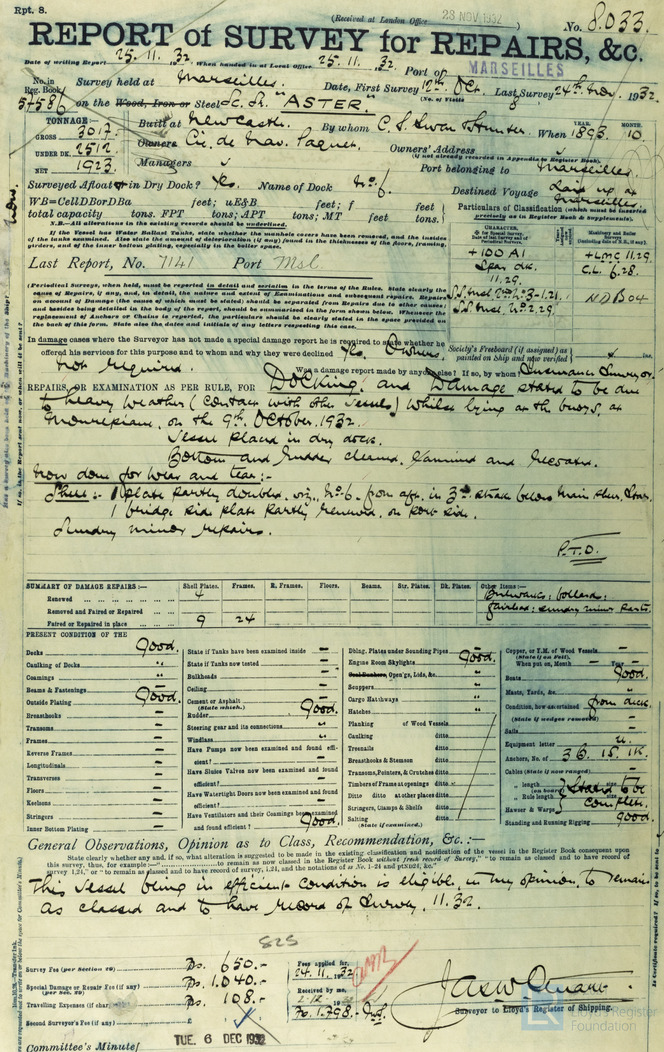 Rpt. 8.
(Received at London Office 28 NOV 1932)
No. 8.033.
REPORT of SURVEY for REPAIRS, &c.
Date of writing Report 25.11.32. When handed in at Local Office 25.11.32. Port of MARSEILLES
No. in Reg. Book 57586 Survey held at Marseilles. Date, First Survey 12th Oct. Last Survey 24th Nov. 1932
(No. of Visits 8
on the Wood, Iron or Steel Sc. Sr. "ASTER."
TONNAGE:—
GROSS 3017.
UNDER DK. 2512
NET 1923
Built at Newcastle. By whom C. S. Swan & Hunter. When YEAR. 1893. MONTH. 10
Owners Cie. de Nav. Paquet. Owners' Address
(if not already recorded in Appendix to Register Book).
Managers Port belonging to Marseilles.
Surveyed Afloat or in Dry Dock? Yes. Name of Dock No. 6. Destined Voyage Laid up at Marseilles.
WB=CellDBorDBa feet; uE&B feet; f feet
total capacity tons. FPT tons; APT tons; MT feet tons.
Particulars of Classification (which must be inserted precisely as in Register Book & Supplements).
N.B.—All alterations in the existing records should be underlined.
If the Vessel has Water Ballast Tanks, state whether the manhole covers have been removed, and the insides of the tanks examined. Also state the amount of deterioration (if any) found in the thicknesses of the floors, framing, girders, and of the inner bottom plating, especially in the boiler space.
+100 A1
11.29
+LMC 11.29.
C.L. 6.28.
ND B04
Last Report, No. 7141 Port Msl
(Periodical Surveys, when held, must be reported in detail and seriatim in the terms of the Rules. State clearly the cause of Repairs, if any, and, in detail, the nature and extent of Examinations and subsequent repairs. Repairs on account of Damage (the cause of which must be stated) should be separated from Repairs due to other causes; and besides being detailed in the body of the report, should be summarized in the form shown below. Whenever the replacement of Anchors or Chains is reported, the particulars should be clearly stated in the space provided on the back of this form. State also the dates and initials of any letters respecting this case.
In damage cases where the Surveyor has not made a special damage report he is required to state whether he
offered his services for this purpose and to whom and why they were declined Yes. Owners.
not required.
Society's Freeboard (if assigned) as painted on Ship and now verified
Was a damage report made by anyone else? If so, by whom Insurance Surveyor.
REPAIRS, OR EXAMINATION AS PER RULE, FOR Docking and Damage stated to be due
to heavy weather (contact with other vessels) whilst lying at the buoys, at
Mourepiane, on the 9th October. 1932.
Vessel placed in dry dock.
Bottom and Rudder cleaned, examined and recoated.
Now done for wear and tear:—
Shell:— 1 plate partly doubled, viz., No. 6. from aft, in 3rd strake below main sheer, Star.
1 bridge side plate partly renewed, on port side.
Sundry minor repairs.
P.T.O.
SUMMARY OF DAMAGE REPAIRS:— Shell Plates. Frames. R. Frames. Floors. Beams. Str. Plates. Dk. Plates. Other Items:—
Renewed 4 Bulwarks: bollard:
Removed and Faired or Repaired fairlead: sundry minor parts.
Faired or Repaired in place 9 24
PRESENT CONDITION OF THE
Decks Good.
Caulking of Decks "
Coamings "
Beams & Fastenings Good.
Outside Plating "
Breasthooks –
Transoms –
Frames –
Reverse Frames –
Longitudinals –
Transverses –
Floors –
Keelsons –
Stringers –
Inner Bottom Plating –
State if Tanks have been examined inside –
State if Tanks now tested –
Bulkheads –
Ceiling –
Cement or Asphalt –
(State which.)
Rudder Good.
Steering gear and its connections "
Windlass "
Have Pumps now been examined and found efficient? –
Have Sluice Valves now been examined and found efficient? –
Have Watertight Doors now been examined and found efficient? –
Have Ventilators and their Coamings been examined and found efficient? Good.
Dblng. Plates under Sounding Pipes –
Engine Room Skylights Good.
Coal Bunkers, Open'gs, Lids, &c. "
Scuppers "
Cargo Hatchways "
Hatches "
Planking of Wood Vessels
Caulking ditto
Treenails ditto
Breasthooks & Stemson ditto
Transoms, Pointers, & Crutches ditto
Timbers of Frame at openings ditto
Ditto ditto at other places ditto
Stringers, Clamps & Shelfs ditto
Salting ditto
(State if examined.)
Copper, or Y.M. of Wood Vessels
(State if on Felt).
When put on, Month – Year –
Boats Good.
Masts, Yards, &c. "
Condition, how ascertained from deck.
(State if wedges removed)
Sails –
Equipment letter u.
Anchors, No. of 3B. 1S. 1K.
Cables (State if now ranged) –
" length (on board) size
" Rule length size
Stated to be complete.
Hawser & Warps
Standing and Running Rigging Good.
General Observations, Opinion as to Class, Recommendation, &c. :—
State clearly whether any and, if so, what alteration is suggested to be made in the existing classification and notification of the vessel in the Register Book consequent upon
this survey, thus, for example:—"........ to remain as now classed in the Register Book without fresh record of Survey," "to remain as classed and to have record of
This Vessel being in efficient condition is eligible, in my opinion, to remain
as classed and to have record of Survey, 11.32.
825
Survey Fee (per Section 29) Ps. 650.-
Special Damage or Repair Fee (if any) Ps. 1.040.-
(per Sec. 29)
Travelling Expenses (if chargeable) Ps. 108.-
Second Surveyor's Fee (if any) £
Fees applied for,
24.11.1932.
Received by me,
Surveyor to Lloyd's Register of Shipping.
Committee's Minute
TUE. 6 DEC 1932
Lloyd's Register
Foundation